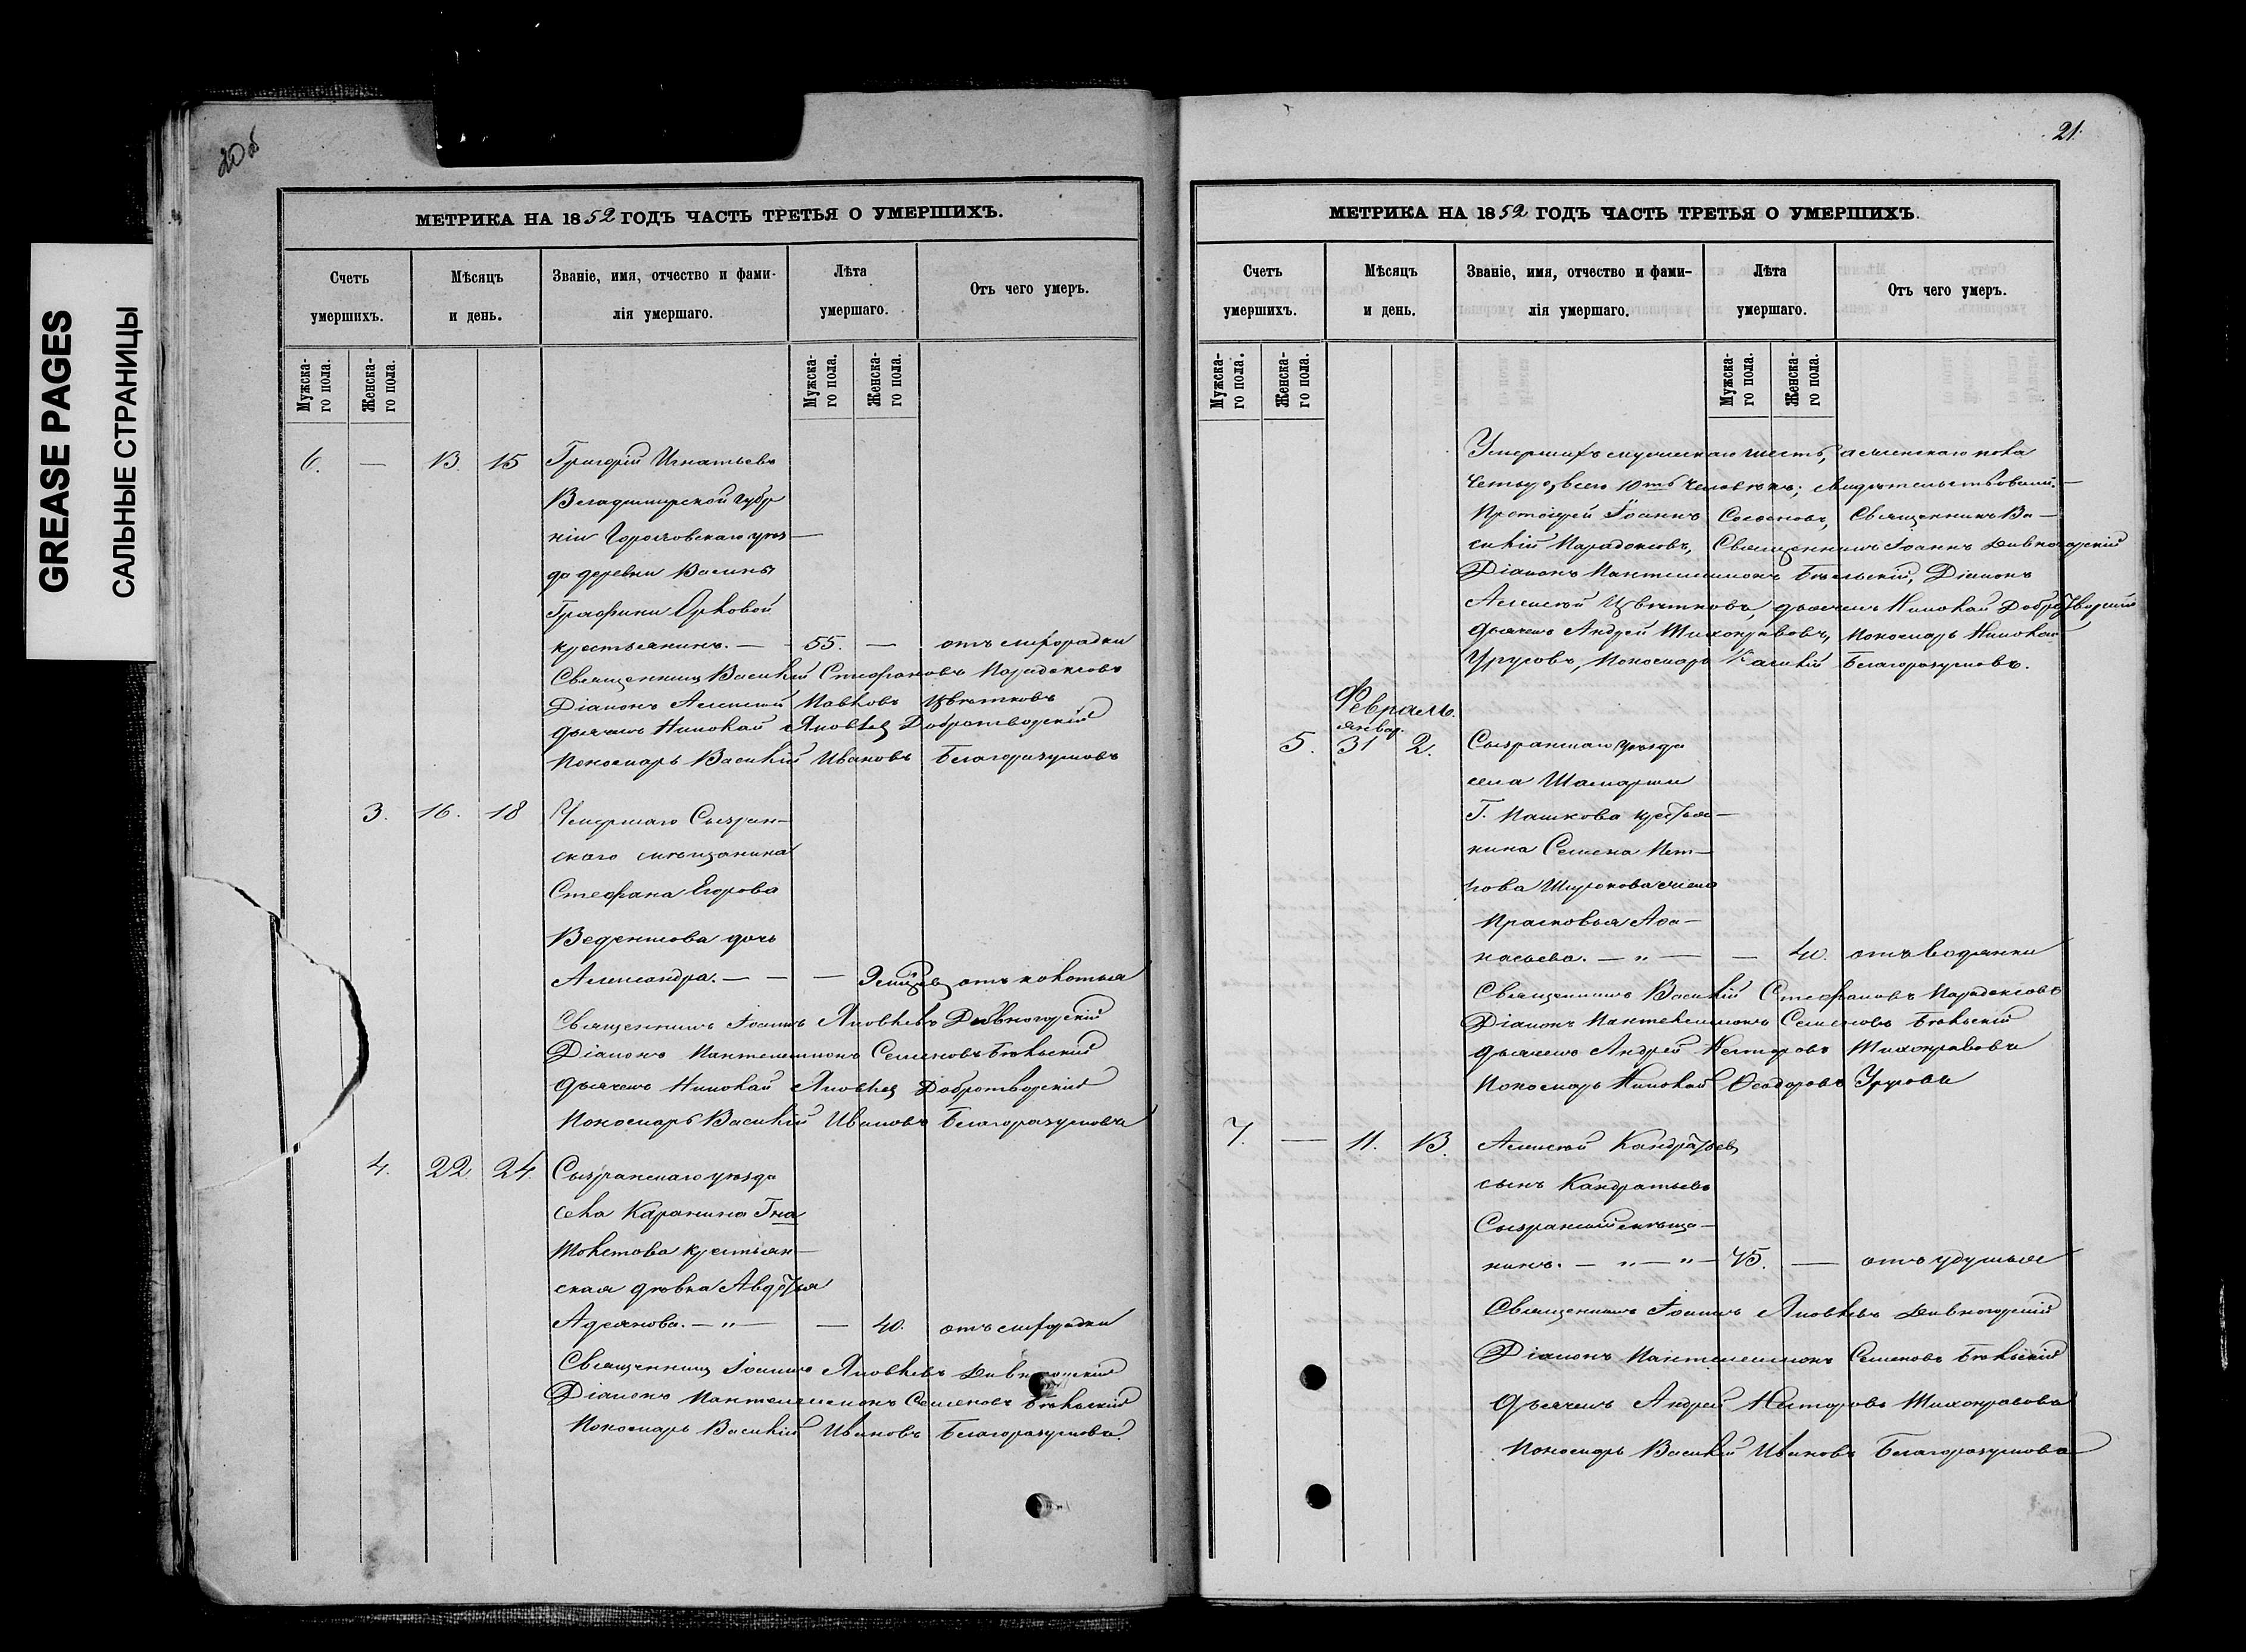 GREASE PAGES
САЛЬНЫЕ СТРАНИЦЫ
20 об
МЕТРИКА НА 1852 ГОДЪ ЧАСТЬ ТРЕТЬЯ О УМЕРШИХЪ.
Счетъ умершихъ.
Мѣсяцъ и день.
Званіе, имя, отчество и фами-
лія умершаго.
Лѣта умершаго.
Отъ чего умеръ.
Мужска-
го пола.
Женска-
го пола.
Мужска-
го пола.
Женска-
го пола.
6. — 13. 15 Григорій Игнатьевъ
Владимирской губер
ніи Гороховскаго уѣз—
да деревни
Графини Орловой
крестьянинъ. — 55. — отъ лихорадки
Священникъ Василій Стефановъ Парадоксовъ
Діаконъ Алексѣй Павловъ Цвѣтковъ
дьячекъ Николай Яковлев Добротворскій
Пономарь Василій Ивановъ Благоразумовъ
3. 16. 18 Умершаго Сызран—
скаго мѣщанина
Стефана Егорова
Веденисова дочь
Александра. — — — отъ колотья
Священникъ Іоаннъ Яковлевъ Дивногорскій
Діаконъ Пантелеимонъ Семеновъ Бѣльскій
дьячекъ Николай Яковлев Добротворскій
Пономарь Василій Ивановъ Благоразумовъ
4. 22. 24. Сызранскаго уѣзда
села Каранина Гна
Толстова крестьян—
ская дѣвка Авдотья
Адріанова. — „ — — 40. отъ лихорадки
Священникъ Іоаннъ Яковлевъ Дивногорскій
Діаконъ Пантелеимонъ Семеновъ Бѣльскій
Пономарь Василій Ивановъ Благоразумовъ.
21.
МЕТРИКА НА 1852 ГОДЪ ЧАСТЬ ТРЕТЬЯ О УМЕРШИХЪ.
Счетъ умершихъ.
Мѣсяцъ и день.
Званіе, имя, отчество и фами-
лія умершаго.
Лѣта умершаго.
Отъ чего умеръ.
Мужска-
го пола.
Женска-
го пола.
Мужска-
го пола.
Женска-
го пола.
Умершихъ мужескаго шесть, а женскаго пола
четыре, всего 10ть человѣкъ; свидѣтельствовали. —
Протоіерей Іоаннъ Священникъ Ва—
силій Парадоксовъ, Священникъ Іоаннъ Дивногорскій
Діаконъ Пантелеимонъ Бѣльскій, Діаконъ
Алексѣй Цвѣтковъ, дьячекъ Николай Добротворскій
дьячекъ Андрей Тихонравовъ, Пономарь Николай
Урусовъ, Пономарь Василій Благоразумовъ.
Февраль.
Январ.
5. 31 2. Сызранскаго уѣзда
села Шамарши
Г. Пашкова крестья—
нина Семена Пет—
рова Широкова жена
Прасковья Афа—
насьева. — „ — — 40. отъ водянки
Священникъ Василій Стефановъ Парадоксовъ
Діаконъ Пантелеимонъ Семеновъ Бѣльскій
дьячекъ Андрей Несторовъ Тихонравовъ
Пономарь Николай Ѳеодоровъ Урусовъ
7. — 11. 13. Алексѣй Кандратьев
сынъ Кандратьевъ
Сызранскій мѣща—
нинъ. — „ — „ — 75. — отъ удушья
Священникъ Іоаннъ Яковлевъ Дивногорскій
Діаконъ Пантелеимонъ Семеновъ Бѣльскій
Дьячекъ Андрей Несторовъ Тихонравовъ
Пономарь Василій Ивановъ Благоразумовъ